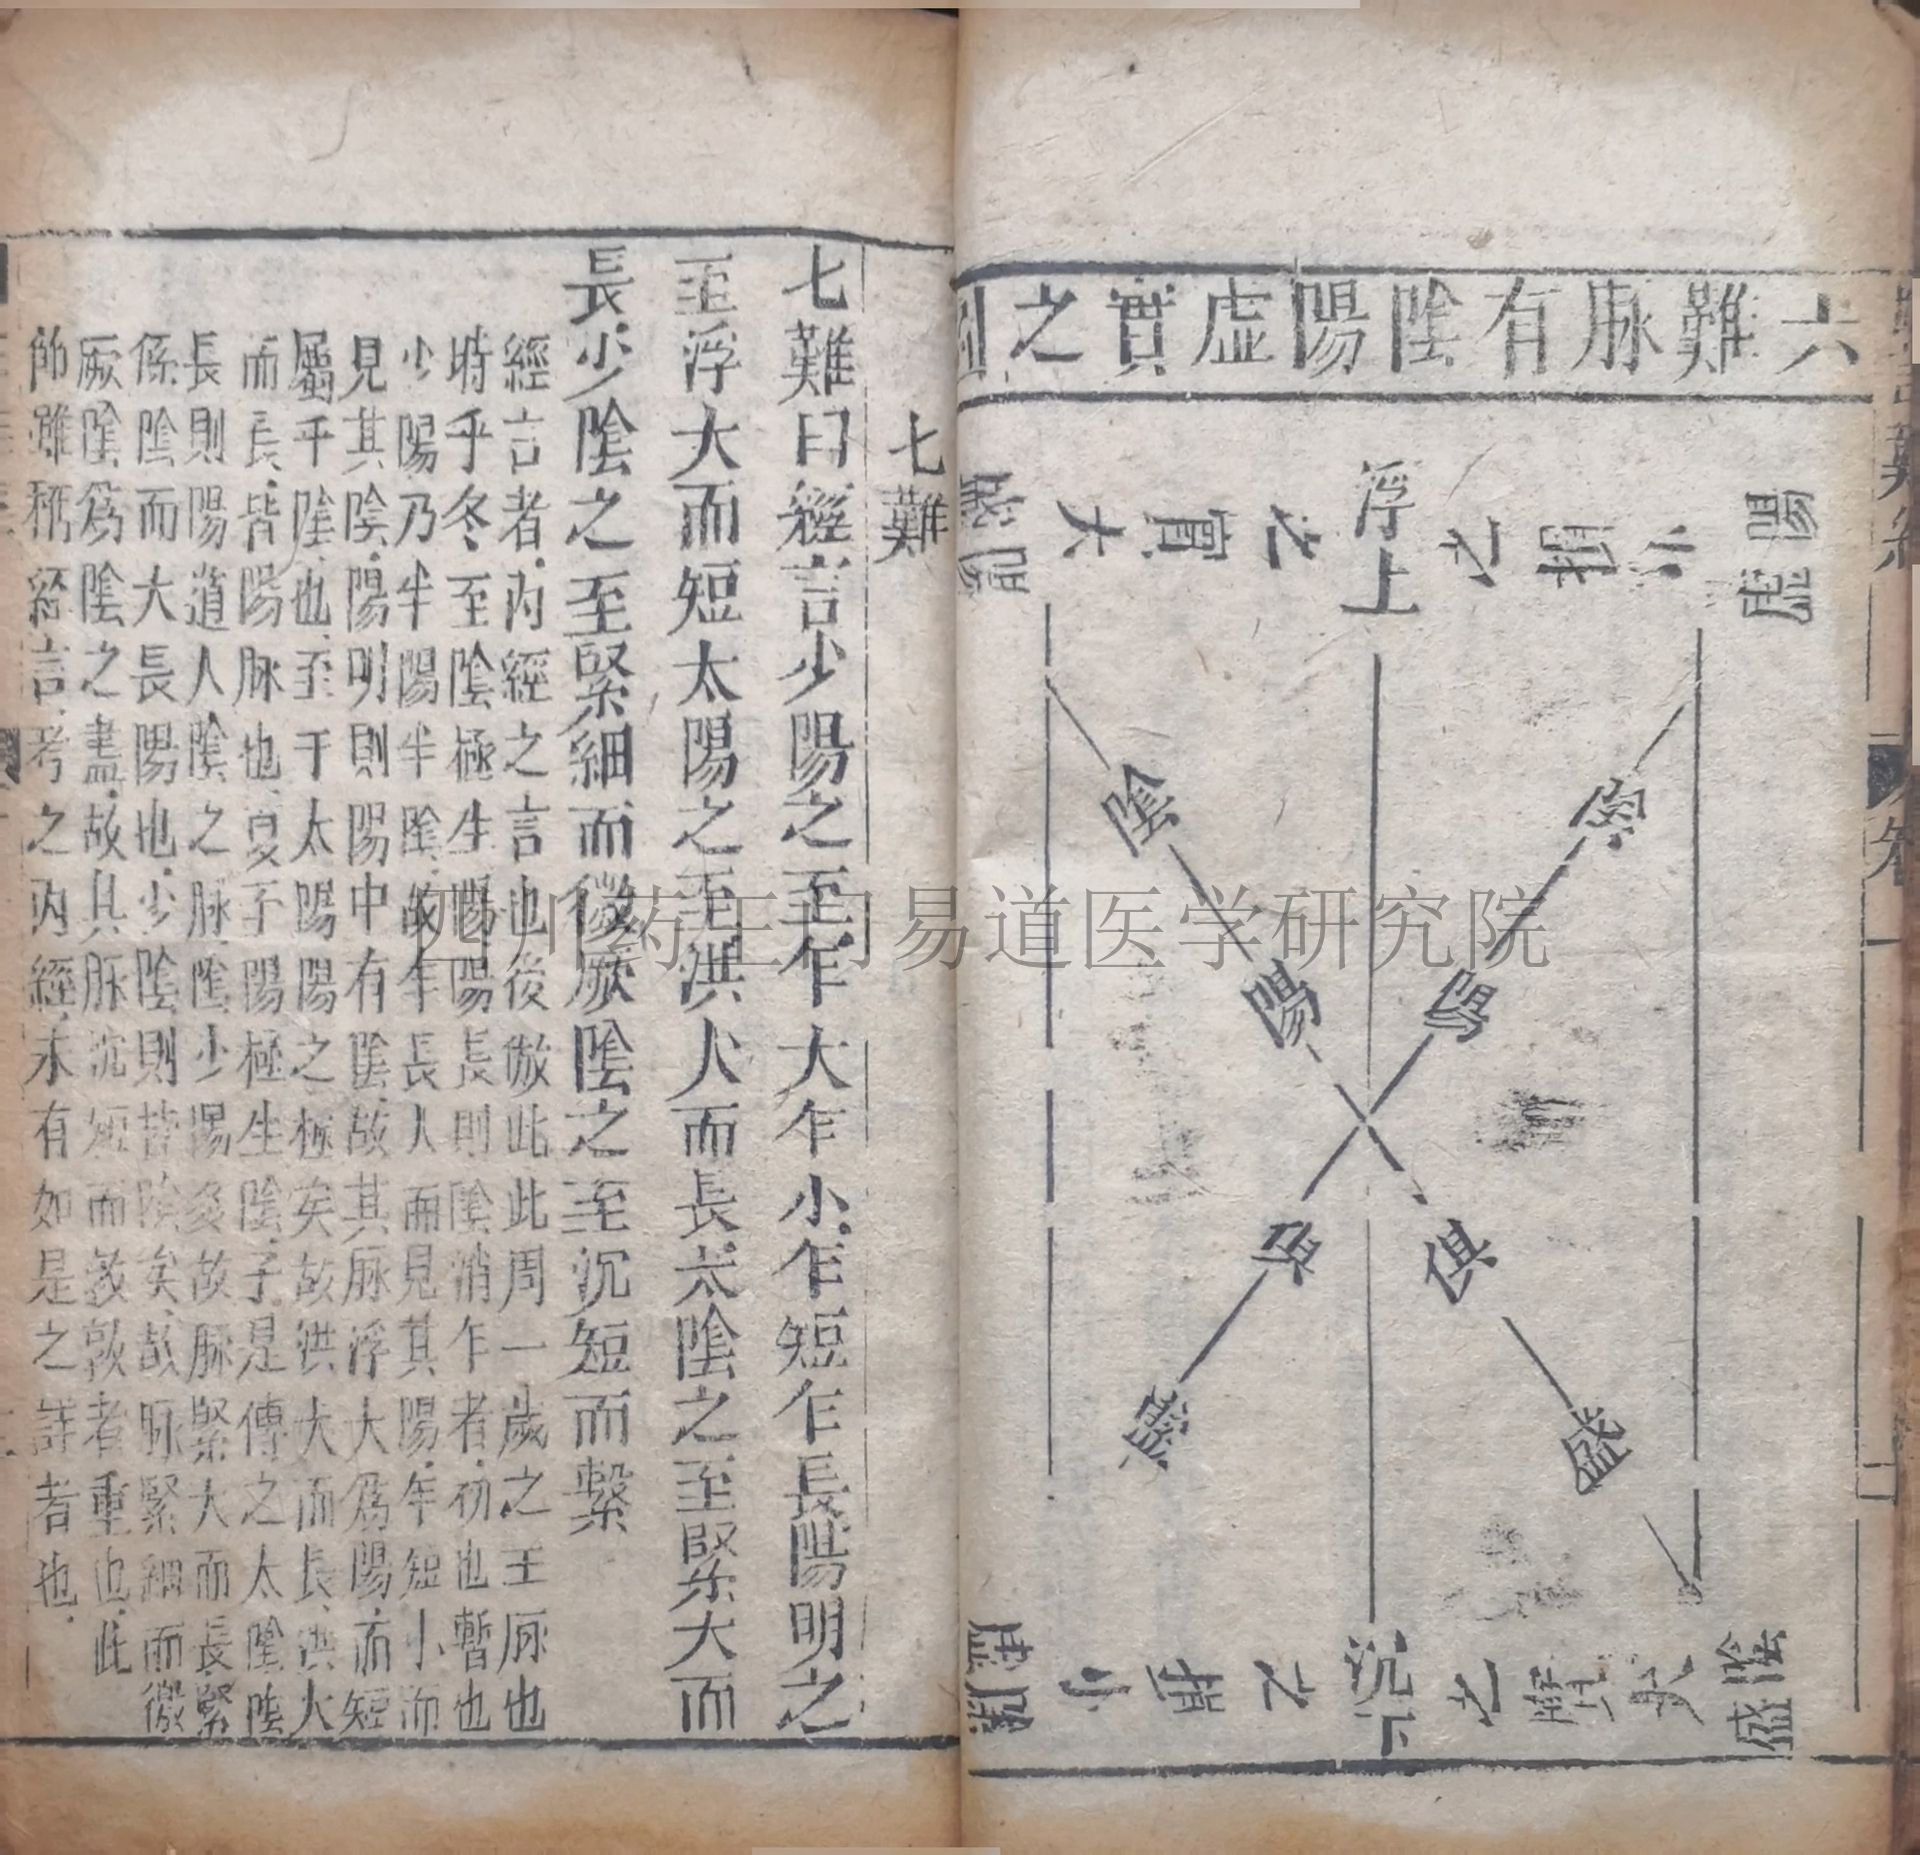 六難脉有陰陽虛實之圖
陽虛
小
之
浮上
之實大
盛陽
陰陽俱盛
陰陽俱盛
陰盛
大
之
沉下
之損小
虛陰
卷一
七難
七難曰經言少陽之至乍大乍小乍短乍長陽明之
至浮大而短太陽之至洪大而長太陰之至緊大而
長少陰之至緊細而微厥陰之至沉短而緊
經言者内經之言也後倣此此周一歲之王脉也
時乎冬至陰極生陽陽長則陰消乍者初也暫也
少陽乃半陽半陰故乍長大而見其陽乍短小而
見其陰陽明則陽中有陰故其脉浮大爲陽而短
屬乎陰也至于太陽陽之極矣故洪大而長洪大
而長皆陽脉也夏子陽極生陰子是傳之太陰陰
長則陽道人陰之脉陰少陽矣故脉緊大而長緊
係陰而大長陽也少陰則皆陰矣故脉緊細而微
厥陰爲陰之盡故其脉沉短而敦敦者重也此
師雖稱經言考之内經未有如是之詳者也
四川药王门易道医学研究院